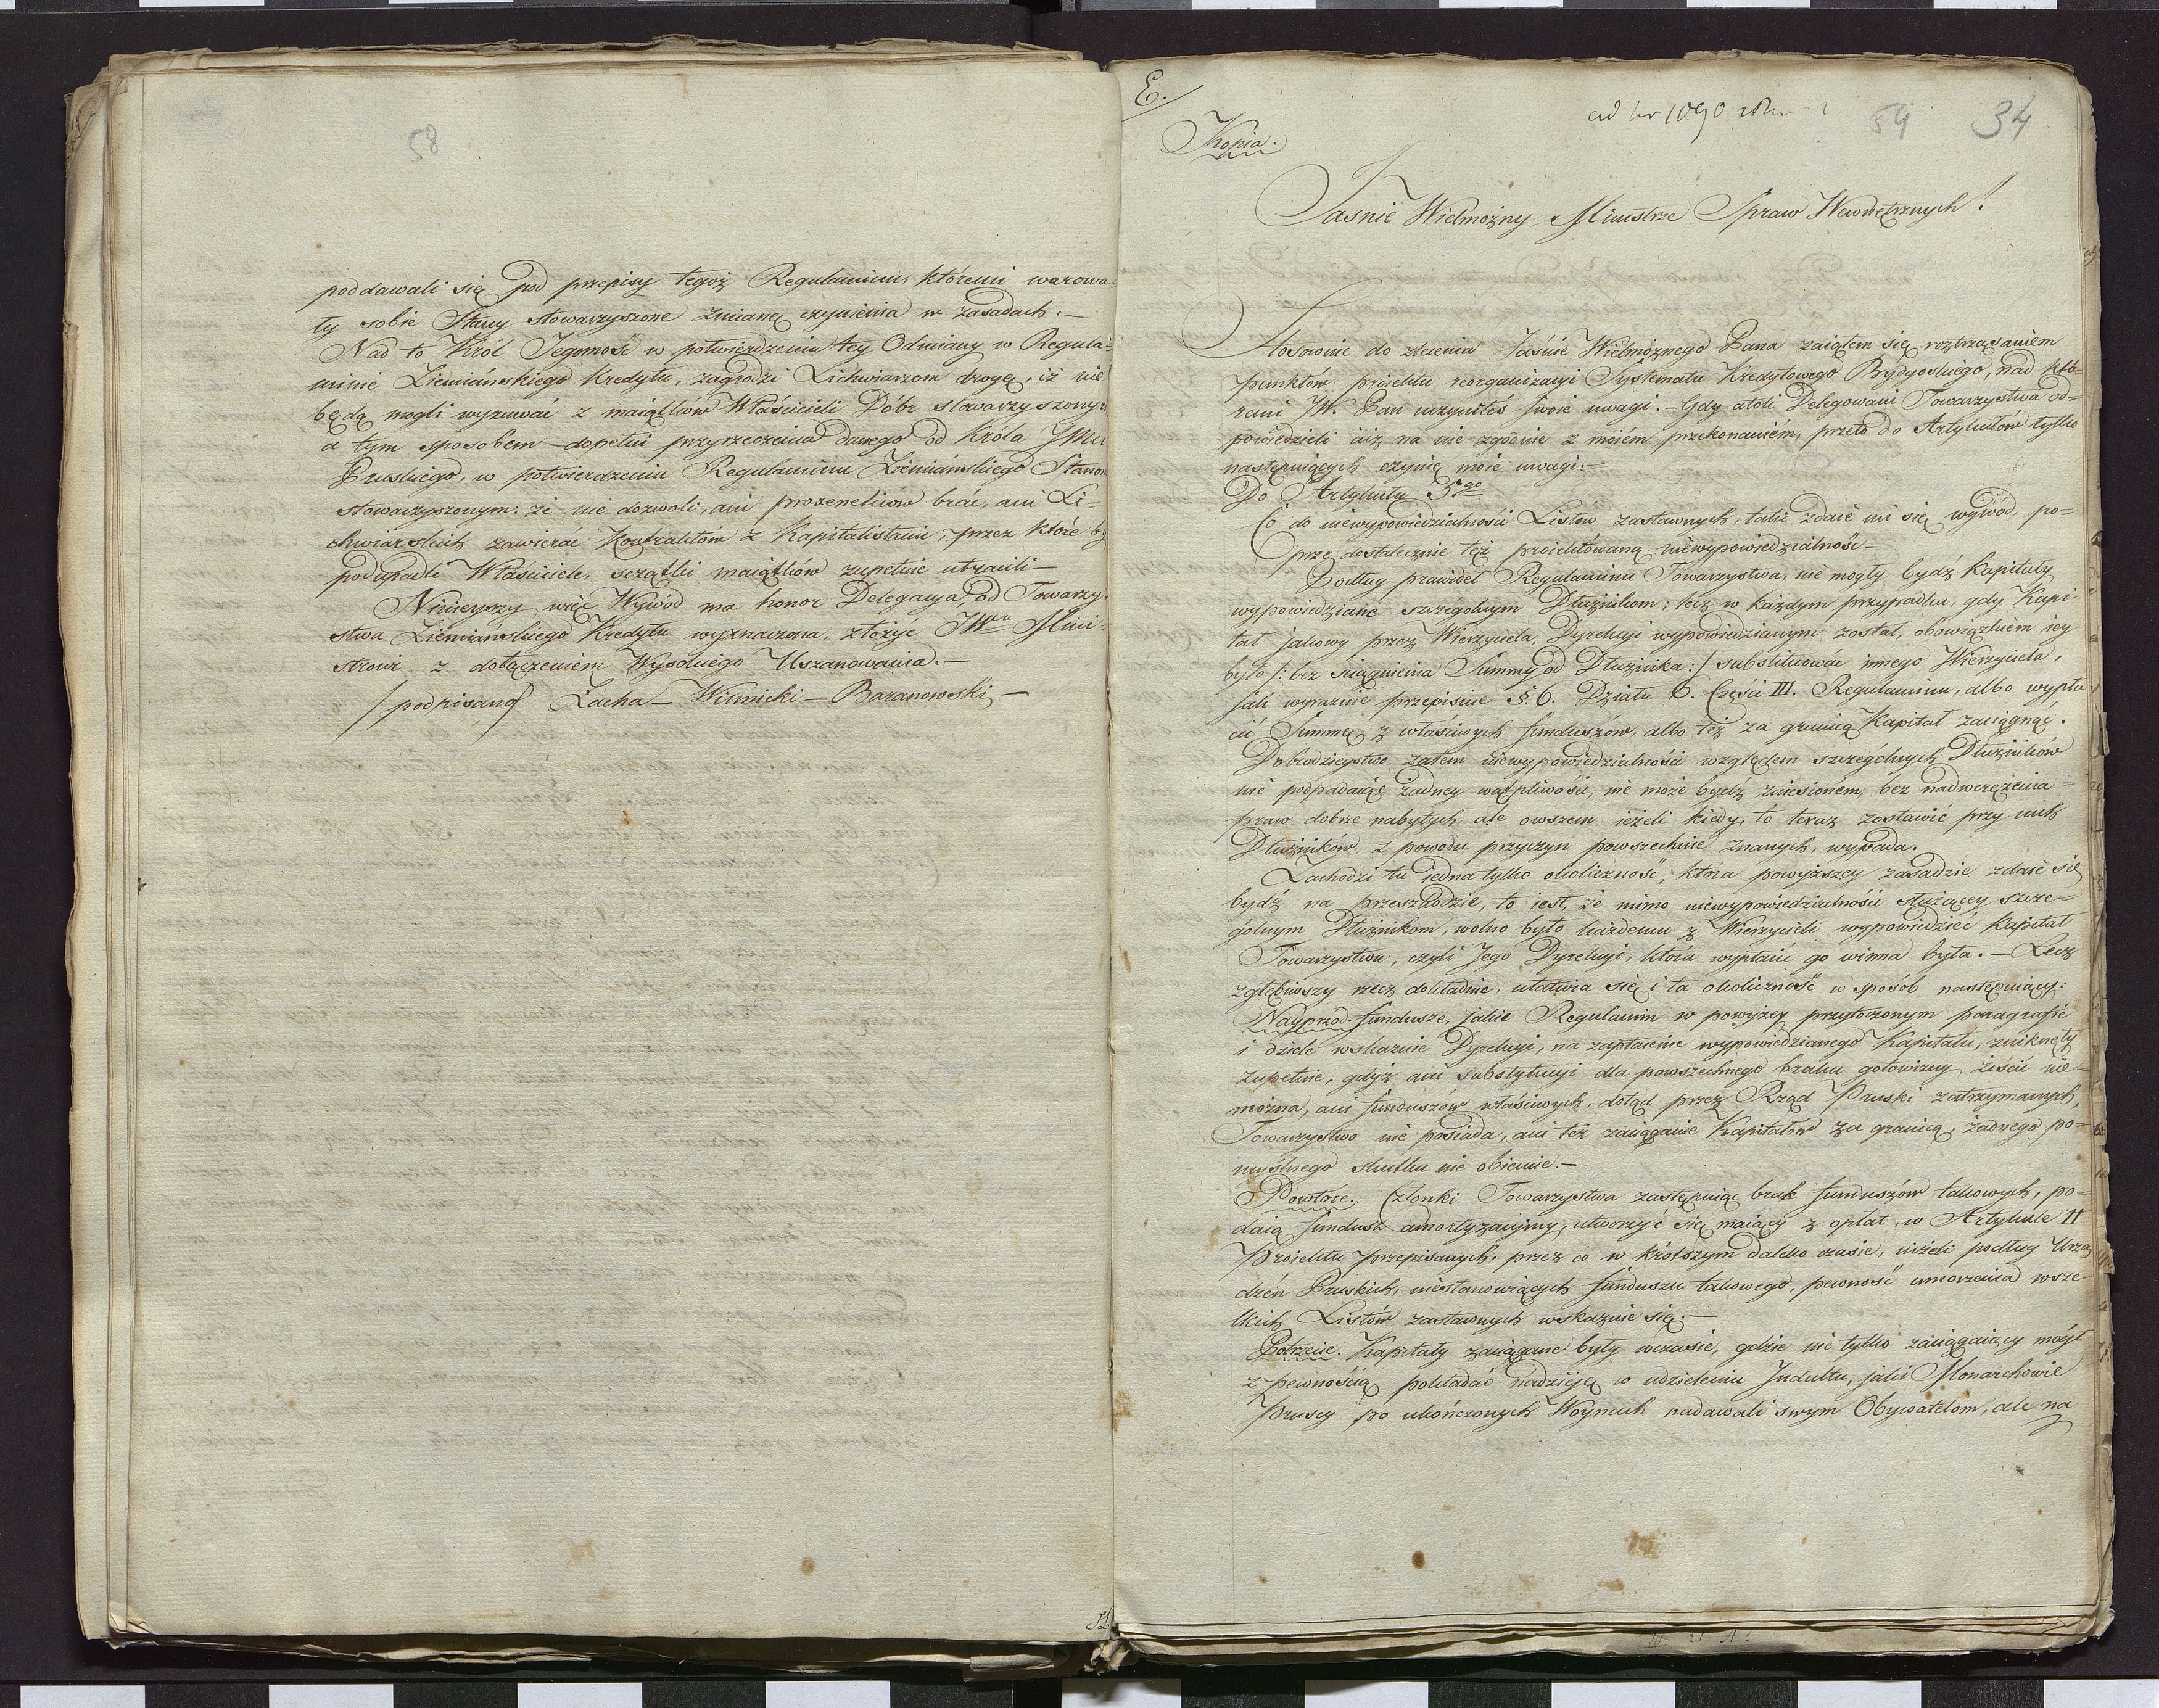 58
poddawali się pod przepisy tegoż Regulaminu, któremi warowa-
ły sobie Stany stowarzyszone zmianę czynienia w zasadach. —
Nad to Król Jegomość w potwierdzeniu tey Odmiany w Regula-
minie Ziemiańskiego Kredytu, zagrodzi Lichwiarzom drogę, iż nie
będą mogli wyzuwać z maiątków Właścicieli Dóbr stowarzyszonych
a tym sposobem — dopełni przyrzeczenia danego od Króla JMci
Pruskiego, w potwierdzeniu Regulaminu Ziemiańskiego Stanom
stowarzyszonym: że nie dozwoli, ani proxenetików brać, ani Li-
chwiarskich zawierać Kontraktów z Kapitalistami, przez które by
podupadli Właściciele, sczątki maiątków zupełnie utracili —
Ninieyszy więc Wywód ma honor Delegacya, od Towarzy-
stwa Ziemiańskiego Kredytu wyznaczona, złożyć JWmu Mini-
strowi z dołączeniem Wysokiego Uszanowania. —
/podpisano/ Zacha — Wiernicki — Baranowski —
E./
ad Nr 1090
59 34
Kopia.
Jasnie Wielmożny Ministrze Spraw Wewnętrznych!
Stosownie do zlecenia Jaśnie Wielmożnego Pana zaiąłem się roztrząsaniem
punktów proiektu reorganizacyi Systematu Kredytowego Bydgoskiego, nad któ-
remi JW. Pan uczyniłeś swoie uwagi. — Gdy atoli Delegowani Towarzystwa od-
powiedzieli iuż na nie zgodnie z moiém przekonaniém, przeto do Artykułów tylko
następuiących czynię moie uwagi: —
Do Artykułu 5go
Co do niewypowiedzialności Listów zastawnych, taki zdaie mi się wywód, po-
prze dostatecznie też proiektowaną niewypowiedzialność —
Podług prawideł Regulaminu Towarzystwa, nie mogły bydź Kapitały
wypowiedziane szczególnym Dłużnikom; lecz w każdym przypadku, gdy Kapi-
tał jakowy przez Wierzyciela, Dyrekcyi wypowiedzianym został, obowiązkiem iey
było /: bez sciągnienia Summy od Dłużnika :/ substituować innego Wierzyciela,
jak wyraźnie przepisuie §. 6. Działu 6. Części III. Regulaminu, albo wypła-
cić Summę z właściwych funduszów, albo też za granicą Kapitał zaciągnąć.
Dobrodzieystwo zatem niewypowiedzialności względem szczególnych Dłużników
nie podpadaiąc żadney wątpliwości, nie może bydź zniesioném, bez nadwerężenia
praw dobrze nabytych, ale owszem ieżeli kiedy, to teraz zostawić przy nich
Dłużników, z powodu przyczyn powszechnie znanych, wypada.
Zachodzi tu iedna tylko okoliczność, która powyższey zasadzie zdaie się
bydź na przeszkodzie, to iest, że mimo niewypowiedzialności służącey szcze-
gólnym Dłużnikom, wolno było każdemu z Wierzycieli wypowiedzieć Kapitał
Towarzystwu, czyli Jego Dyrekcyi, która wypłacić go winna była. — Lecz
zgłębiwszy rzecz dokładnie, ułatwia się i ta okoliczność w sposób następuiący:
Nayprzód. fundusze, jakie Regulamin w powyżey przytoczonym paragrafie
i dziele wskazuie Dyrekcyi, na zapłacenie wypowiedzianego Kapitału, zniknęły
zupełnie, gdyż ani substytucyi dla powszechnego braku gotowizny ziścić nie-
można, ani funduszów właściwych, dotąd przez Rząd Pruski zatrzymanych,
Towarzystwo nie posiada, ani też zaciąganie Kapitałów za granicą, żadnego po-
myślnego skutku nie obiecuie. —
Powtóre. Członki Towarzystwa zastępuiąc brak funduszów takowych, po-
daią fundusz amortyzacyiny, utworzyć się maiący z opłat, w Artykule 11
Proiektu przepisanych, przez co w krótszym daleko czasie, niżeli podług Urzą-
dzéń Pruskich, niestanowiących funduszu takowego, pewność umorzenia wsze-
lkich Listów zastawnych wskazuie się. —
Potrzecie. Kapitały zaciągane były wczasie, gdzie nie tylko zaciągaiący mógł
z pewnością pokładać nadzieię w udzieleniu Indultu, jaki Monarchowie
Pruscy po ukończonych Woynach nadawali swym Obywatelom, ale na